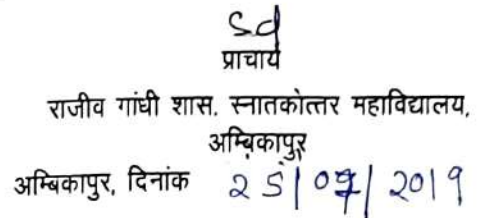 Sd
प्राचार्य
राजीव गांधी शास. स्नातकोत्तर महाविद्यालय,
अम्बिकापुर
अम्बिकापुर, दिनांक 25/07/2019